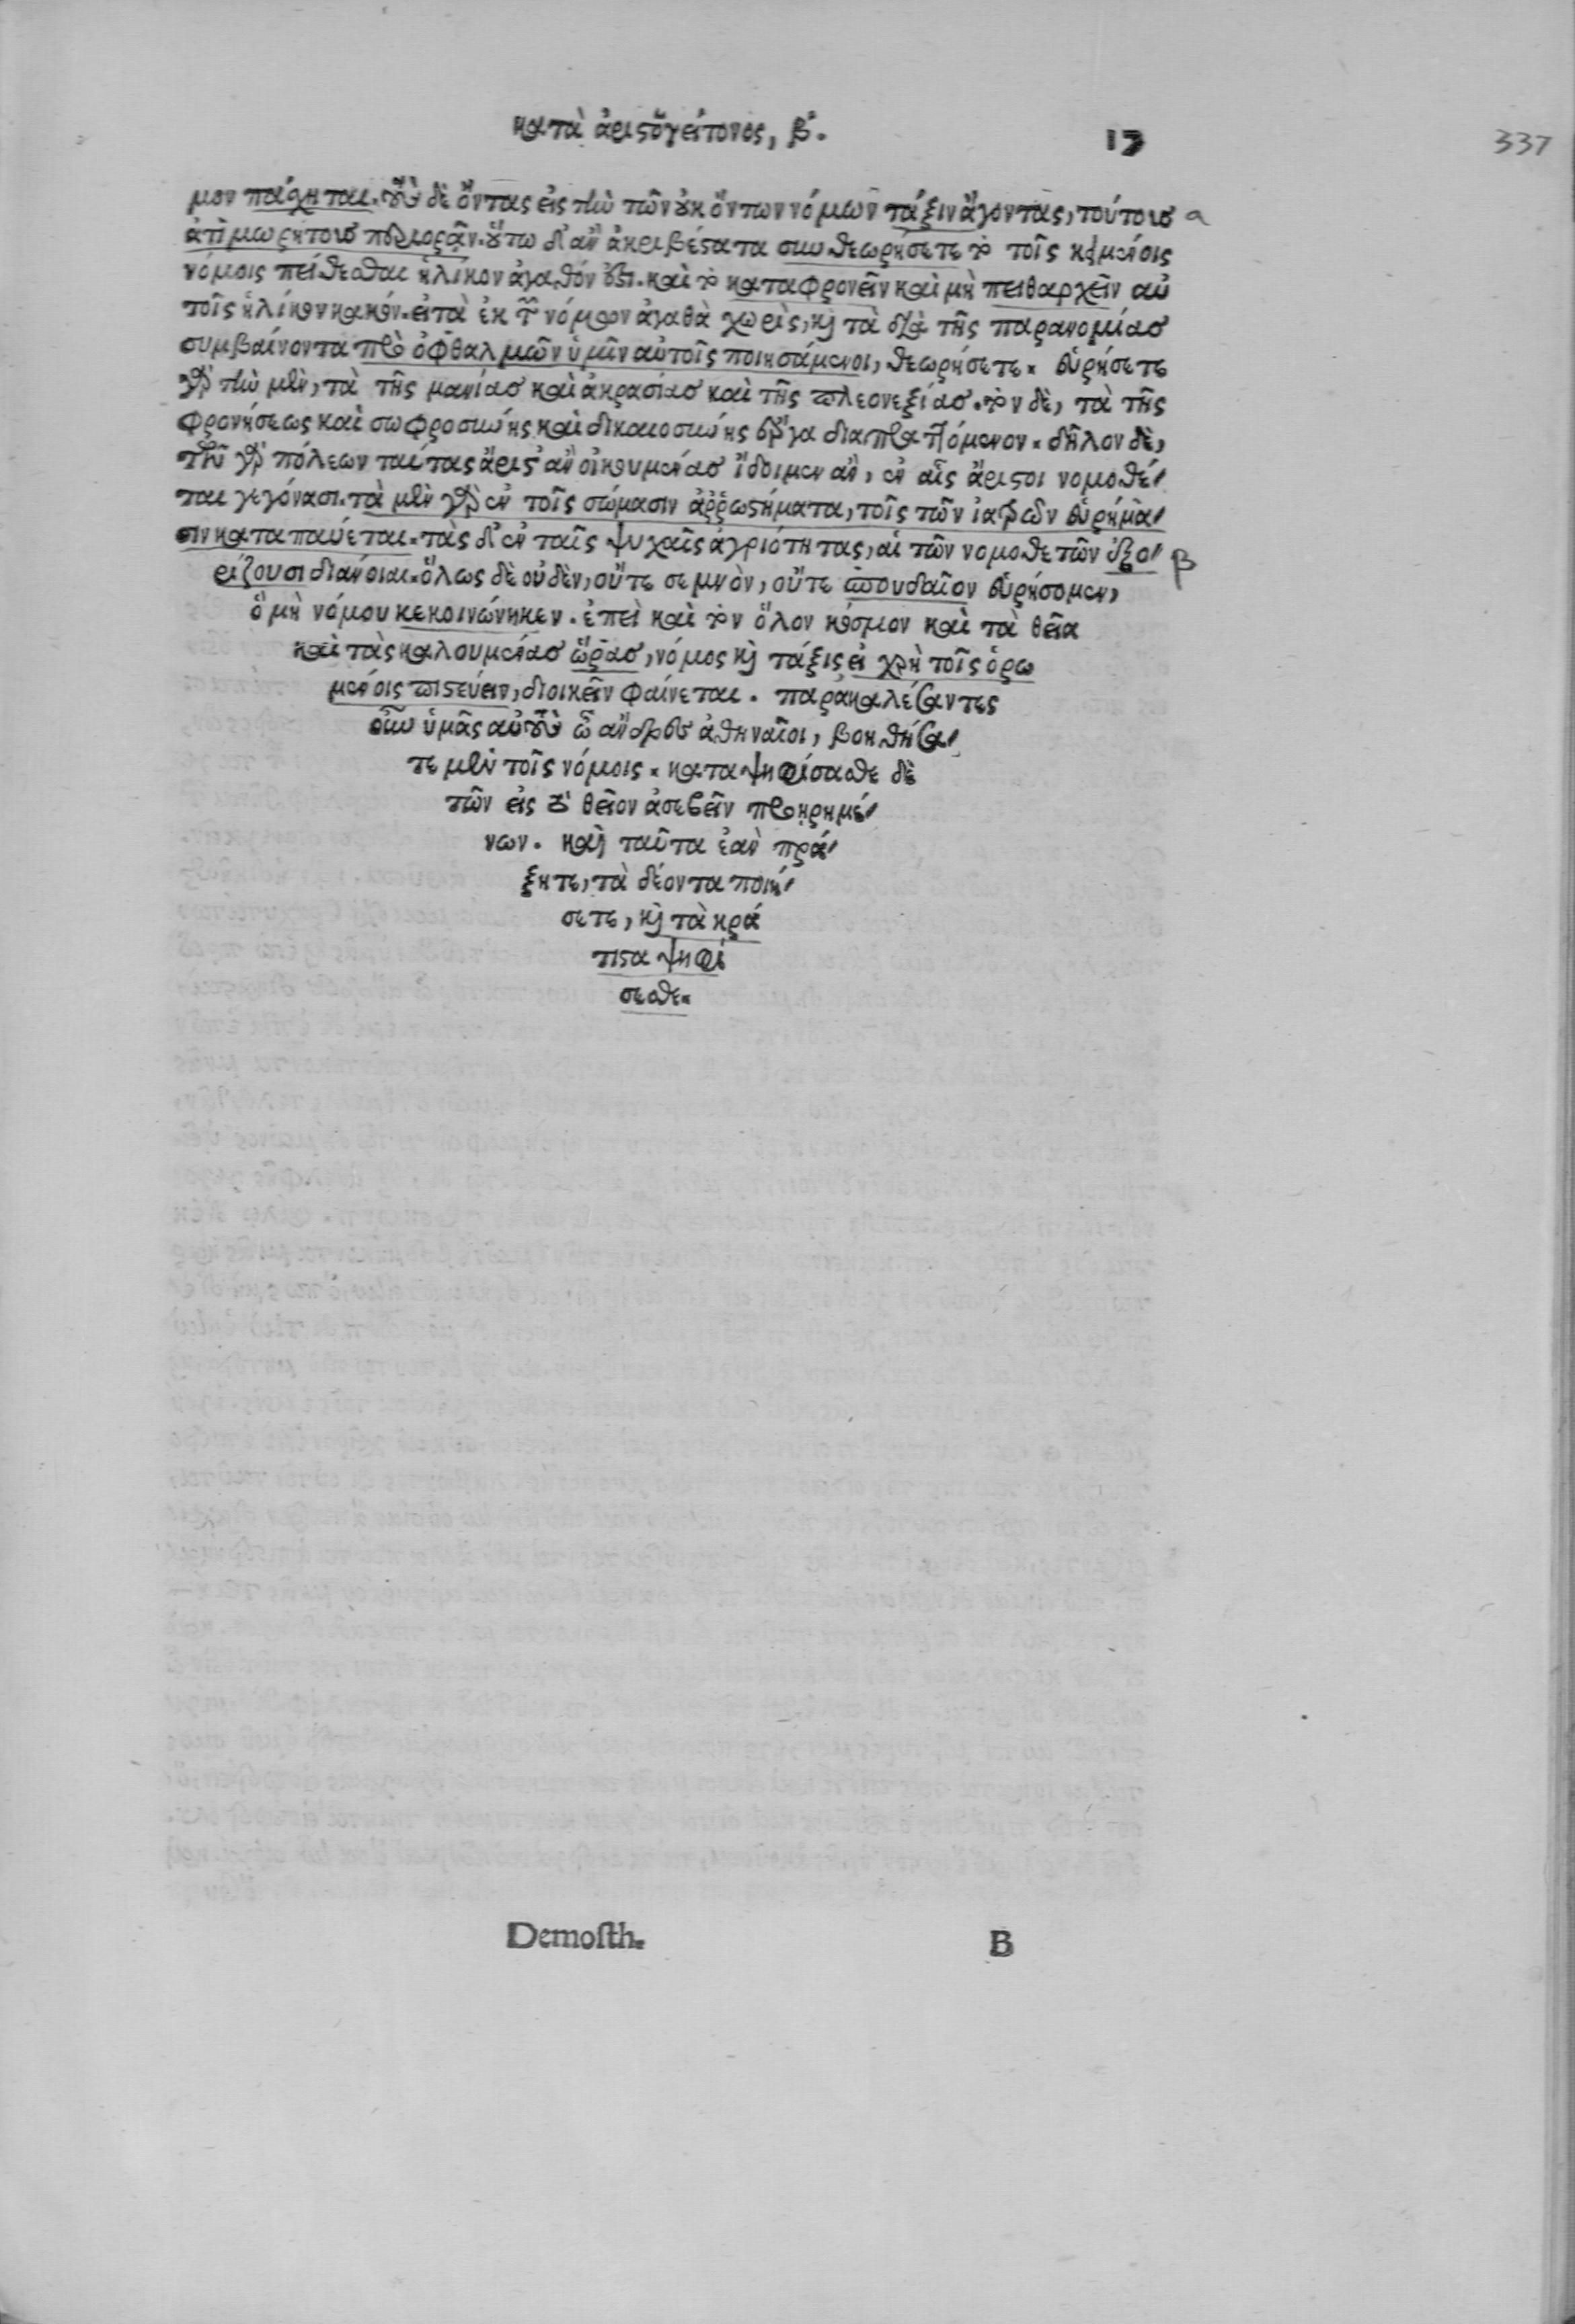 κατὰ ἀριστογείτονος, β΄.
17
337
μον πάσχηται. τοὺς δὲ ὄντας εἰς τὴν τῶν οὐκ ὄντων νόμων τάξιν ἄγοντας, τούτους a
ἀτιμωρήτους περιορᾶν. οὕτω δ' ἂν ἀκριβέστατα συνθεωρήσετε τὸ τοῖς κειμένοις
νόμοις πείθεσθαι ἡλίκον ἀγαθόν ἐστι. καὶ τὸ καταφρονεῖν καὶ μὴ πειθαρχεῖν αὐ
τοῖς ἡλίκον κακόν. εἰ τὰ ἐκ τῶν νόμων ἀγαθὰ χωρὶς, καὶ τὰ διὰ τῆς παρανομίας
συμβαίνοντα πρὸ ὀφθαλμῶν ὑμῖν αὐτοῖς ποιησάμενοι, θεωρήσετε. εὑρήσετε
γὰρ τὴν μὲν, τὰ τῆς μανίας καὶ ἀκρασίας καὶ τῆς πλεονεξίας. τὸν δὲ, τὰ τῆς
φρονήσεως καὶ σωφροσύνης καὶ δικαιοσύνης ἔργα διαπραττόμενον. δῆλον δὲ,
τῶν γὰρ πόλεων ταύτας ἄριστ' ἂν οἰκουμένας ἴδοιμεν ἂν, ἐν αἷς ἄριστοι νομοθέ-
ται γεγόνασι. τὰ μὲν γὰρ ἐν τοῖς σώμασιν ἀῤῥωστήματα, τοῖς τῶν ἰατρῶν εὑρήμα-
σιν καταπαύεται. τὰς δ' ἐν ταῖς ψυχαῖς ἀγριότητας, αἱ τῶν νομοθετῶν ἐξο- β
ρίζουσι διάνοιαι. ὅλως δὲ οὐδὲν, οὔτε σεμνὸν, οὔτε σπουδαῖον εὑρήσομεν,
ὃ μὴ νόμου κεκοινώνηκεν. ἐπεὶ καὶ τὸν ὅλον κόσμον καὶ τὰ θεῖα
καὶ τὰς καλουμένας ὥρας, νόμος καὶ τάξις εἰ χρὴ τοῖς ὁρω
μένοις πιστεύειν, διοικεῖν φαίνεται. παρακαλέσαντες
οὖν ὑμᾶς αὐτοὺς ὦ ἄνδρες ἀθηναῖοι, βοηθήσα-
τε μὲν τοῖς νόμοις. καταψηφίσασθε δὲ
τῶν εἰς τὸ θεῖον ἀσεβεῖν προῃρημέ-
νων. καὶ ταῦτα ἐὰν πρά-
ξητε, τὰ δέοντα ποιή-
σετε, καὶ τὰ κρά
τιστα ψηφι
εῖσθε.
Demosth.
B